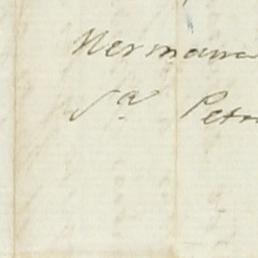 Hermana
Sª Petr